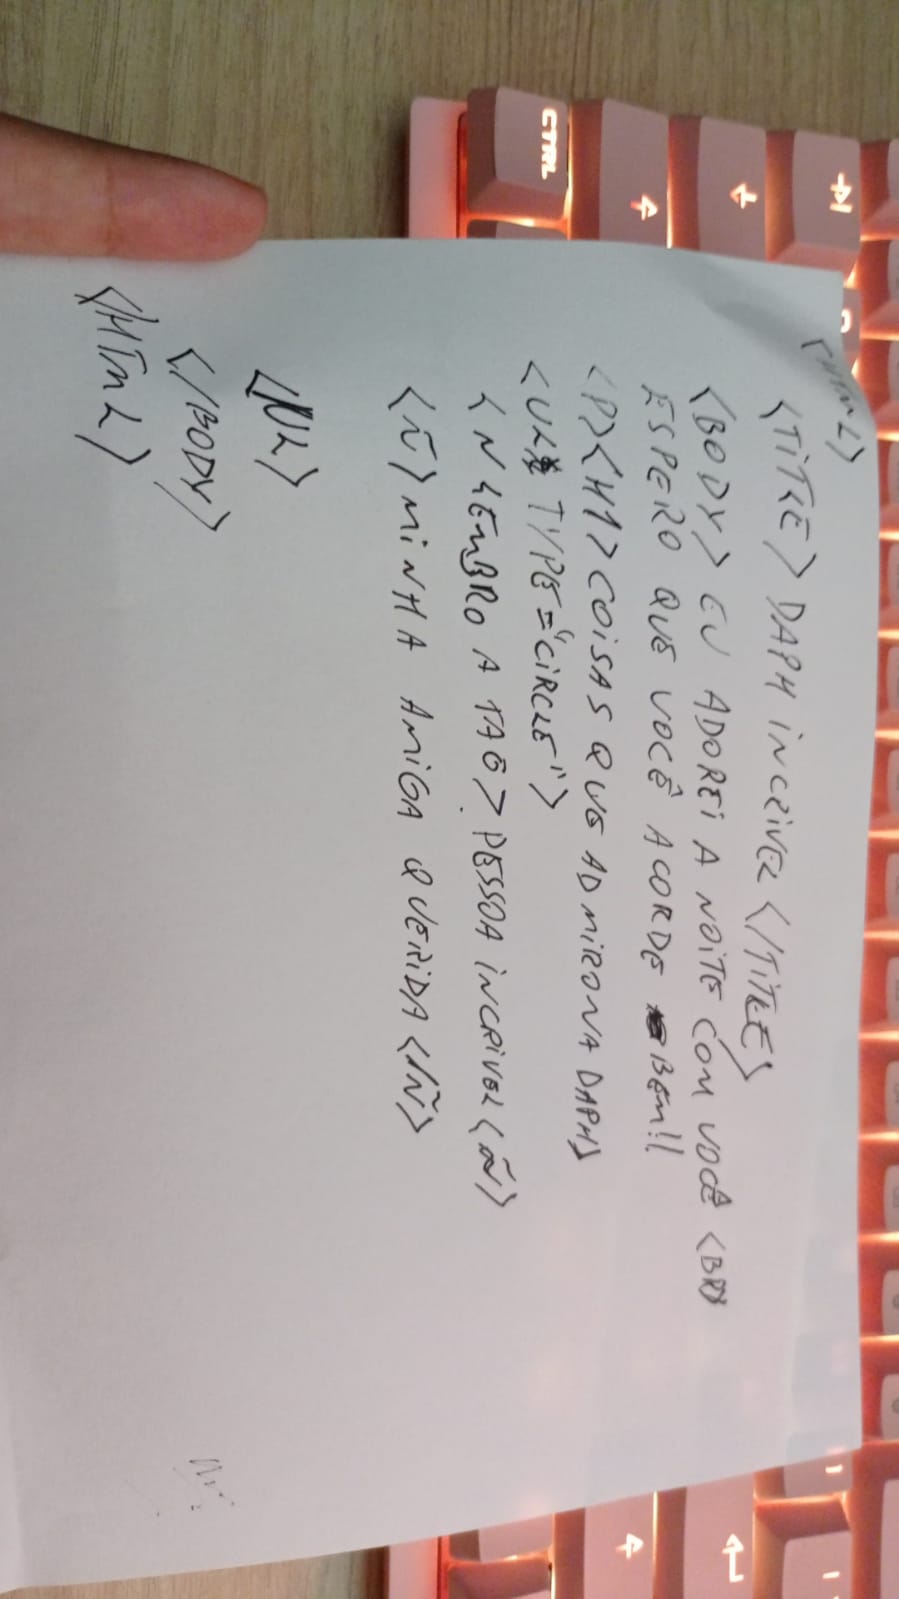 <HTML>
<TITLE> DAPH INCRIVEL </TITLE>
<BODY> EU ADOREI A NOITE COM VOCÊ <BR>
ESPERO QUE VOCÊ ACORDE BEM!!
<P><H1> COISAS QUE ADMIRO NA DAPH>
<UL TYPE="CIRCLE">
<N LEMBRO A TAG> PESSOA INCRIVEL <Ñ>
<Ñ> MINHA AMIGA QUERIDA </Ñ>
</UL>
</BODY>
</HTML>
CTRL